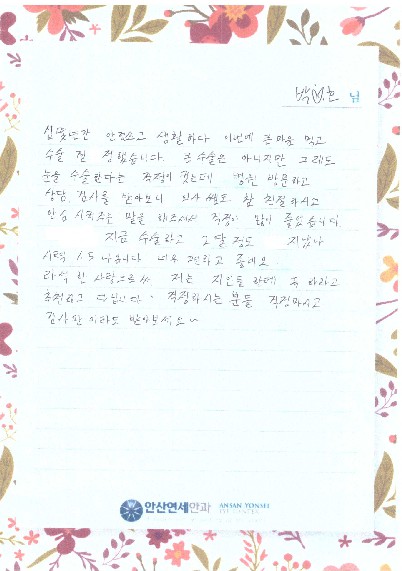 박 호 님
십몇년간 안경쓰고 생활하다 이번에 큰마음 먹고
수술 결정했습니다. 큰수술은 아니지만 그래도
눈을 수술한다는 걱정이 컸는데 병원 방문하고
상담, 검사를 받아보니 의사쌤도 참 친절하시고
안심 시켜주는 말을 해주셔서 걱정이 많이 줄었습니다.
지금 수술하고 2달 정도 지났나
시력 1.5 나옵니다 너무 편하고 좋네요.
라섹 한 사람으로써 저는 지인들 한테 꼭 하라고
추천하고 다닙니다. 걱정하시는 분들 걱정마시고
검사만이라도 받아보세요~
안산연세안과 ANSAN YONSEI
EYE CENTER